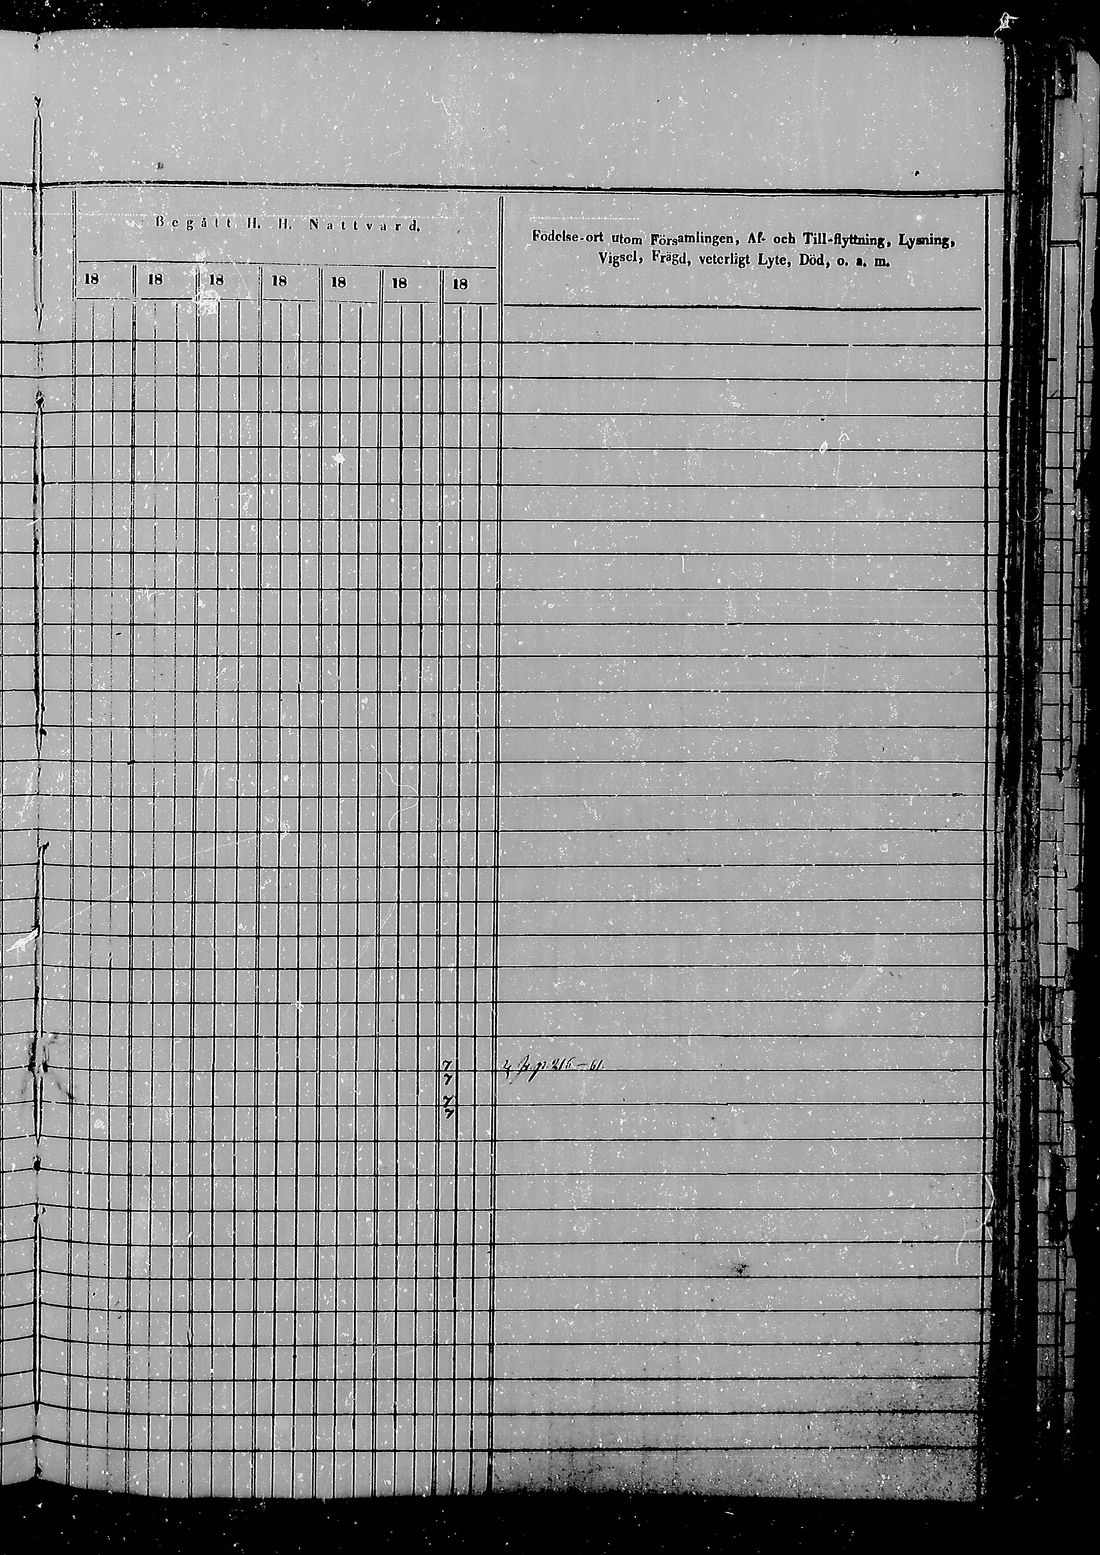 Begått H. H. Nattvard.
Födelse-ort utom Församlingen, Af- och Till-flyttning, Lysning,
Vigsel, Frägd, veterligt Lyte, Död, o. s. m.
18 18 18 18 18 18 18
7 p. 216 – 61.
7
7
7